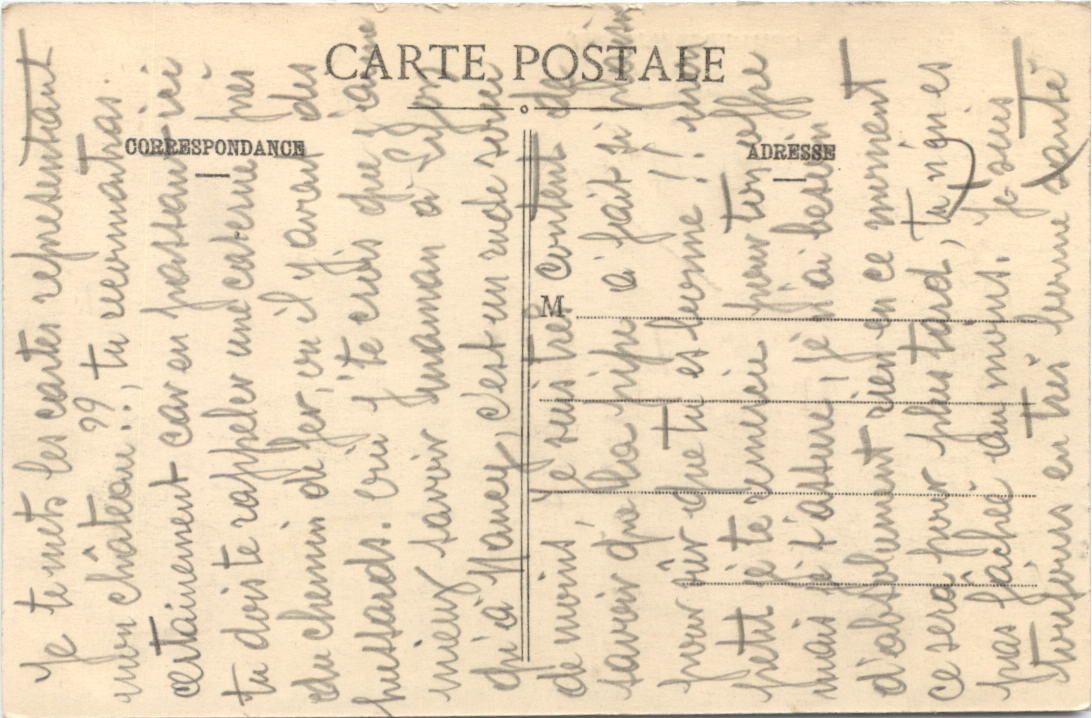 CARTE POSTALE
CORRESPONDANCE
ADRESSE
M
Je te mets les cartes représentant
mon château ??, tu reconnaitras
certainement car en passant ici
tu dois te rappeler une caserne près
du chemin de fer, où il y avait des
hussards. Oui j'te crois que j'aime
mieux savoir maman à Lyon
qu'à Nancy, c'est un rude service
de moins. Je suis très content de
savoir que la pipe a fait plaisir
pour sûr que tu es bonne !! mon
petit je te remercie pour ton offre
mais je t'assure, je n'ai besoin
d'absolument rien en ce moment
ce sera pour plus tard, tu n'en es
pas fâchée au moins. Je suis
toujours en très bonne santé